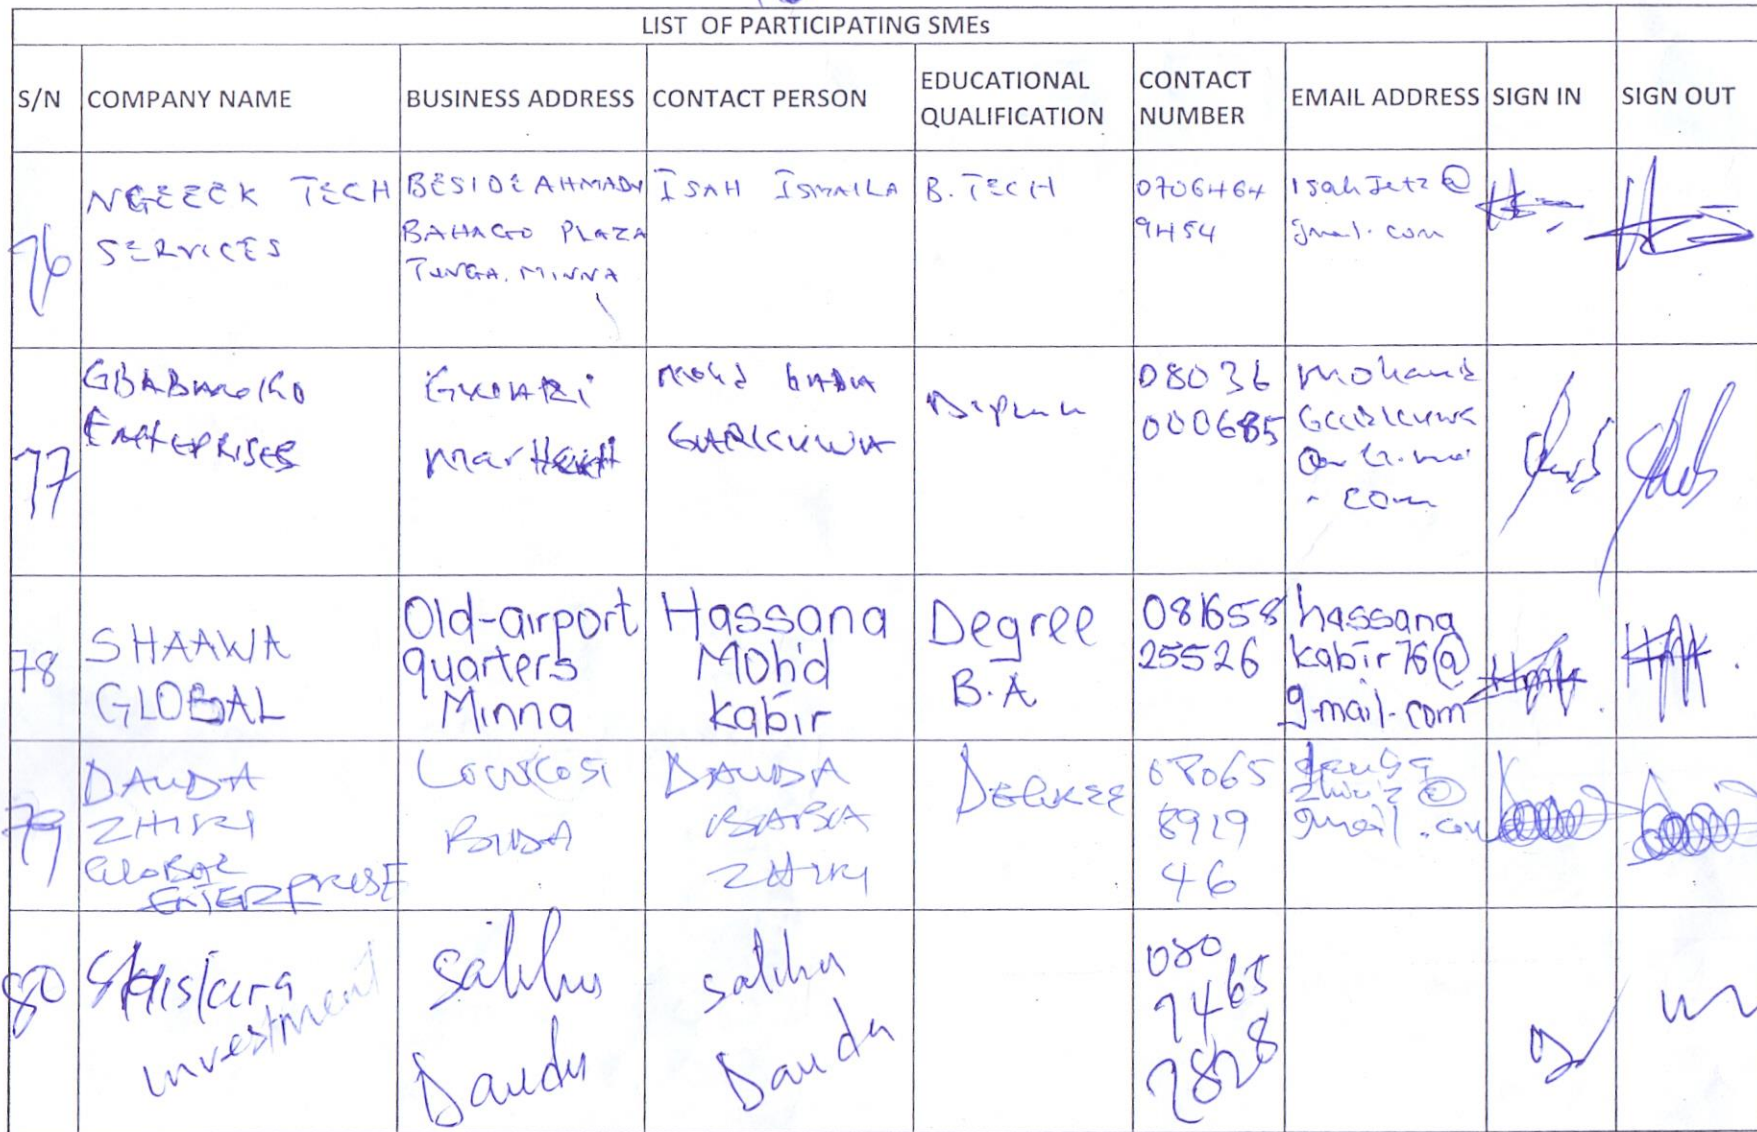 LIST OF PARTICIPATING SMEs
S/N COMPANY NAME BUSINESS ADDRESS CONTACT PERSON EDUCATIONAL QUALIFICATION CONTACT NUMBER EMAIL ADDRESS SIGN IN SIGN OUT
76
NGEEEK TECH
SERVICES
BESIDE AHMADU
BAHAGO PLAZA
TUNGA. MINNA
ISAH ISMAILA
B. TECH
0706464
9454
isahjetz@
gmail.com
77
ENTERPRISES
GWARI
GARKUWA
08036
000685
78
SHAAWA
GLOBAL
Old-airport
quarters
Minna
Hassana
Moh'd
kabir
Degree
B.A
081658
25526
hassana
kabir76@
gmail.com
79
DAUDA
ZHIRI
GLOBAL
ENTERPRISE
BIDA
DAUDA
BABA
ZHIRI
DEGREE
08065
8929
46
gmail.com
80
investment
salihu
Dauda
salihu
Dauda
080
7465
2828